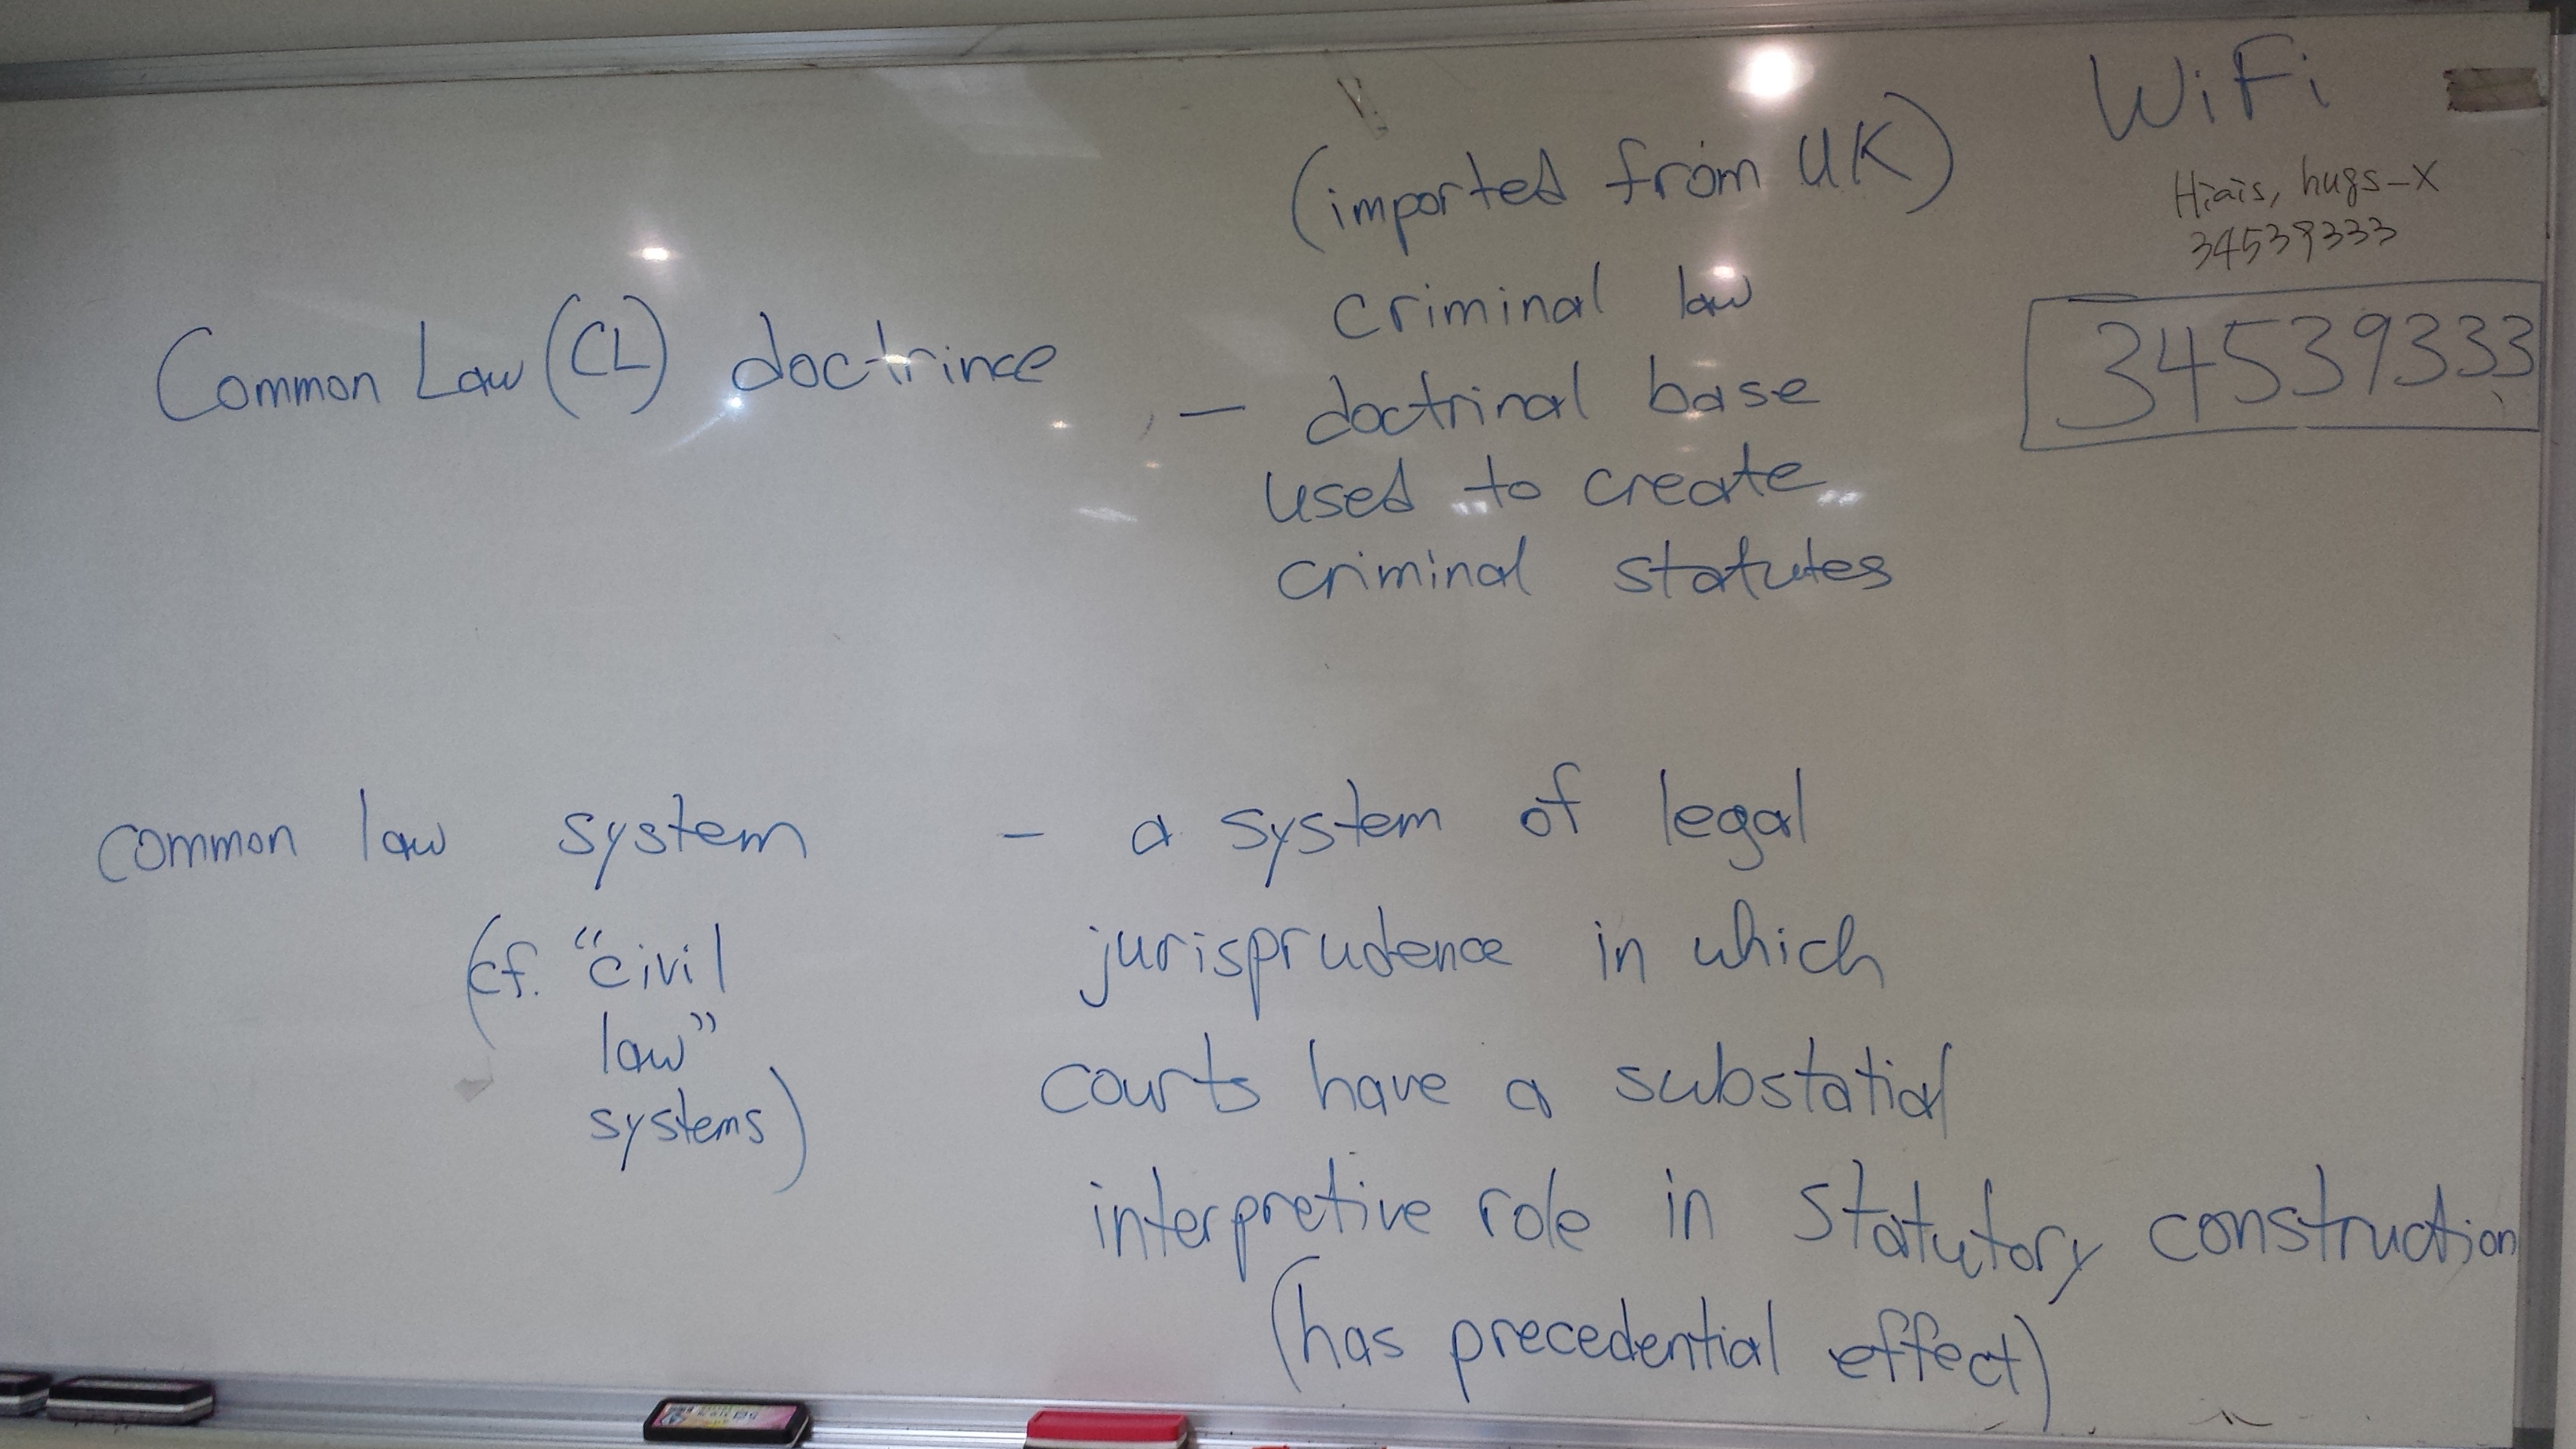 Common Law (CL) doctrince
(imported from UK)
criminal law
– doctrinal base
used to create
criminal statutes
WiFi
Hiais, hugs-X
34539333
34539333
common law system - a system of legal
(cf. "civil
law"
systems)
jurisprudence in which
courts have a substatial
interpretive role in statutory construction
(has precedential effect)